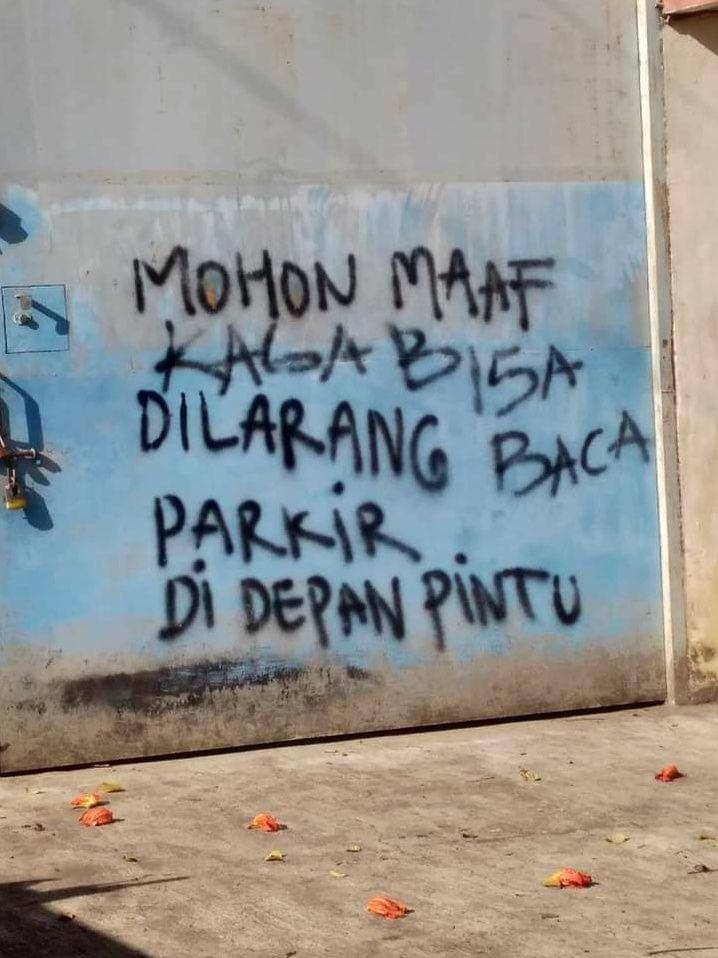 MOHON MAAF
KAGA BISA
DILARANG BACA
PARKIR
DI DEPAN PINTU